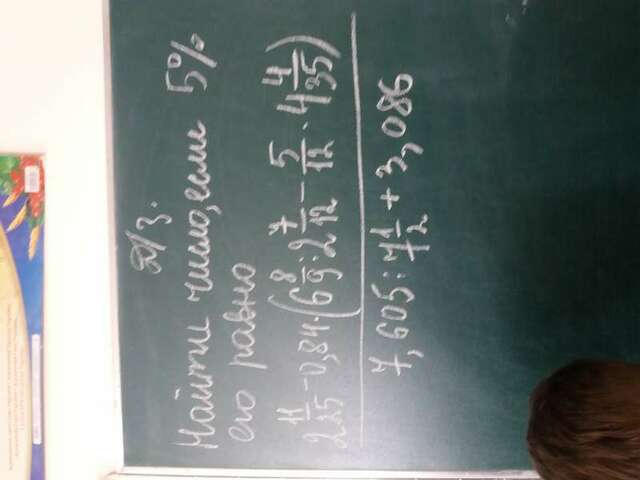 Д/З.
Найти число, если 5%
его равно
2 11/25 - 0,84 · (6 8/9 : 2 7/12 - 5/12 · 4 4/35)
7,605 : 7 1/2 + 3,086